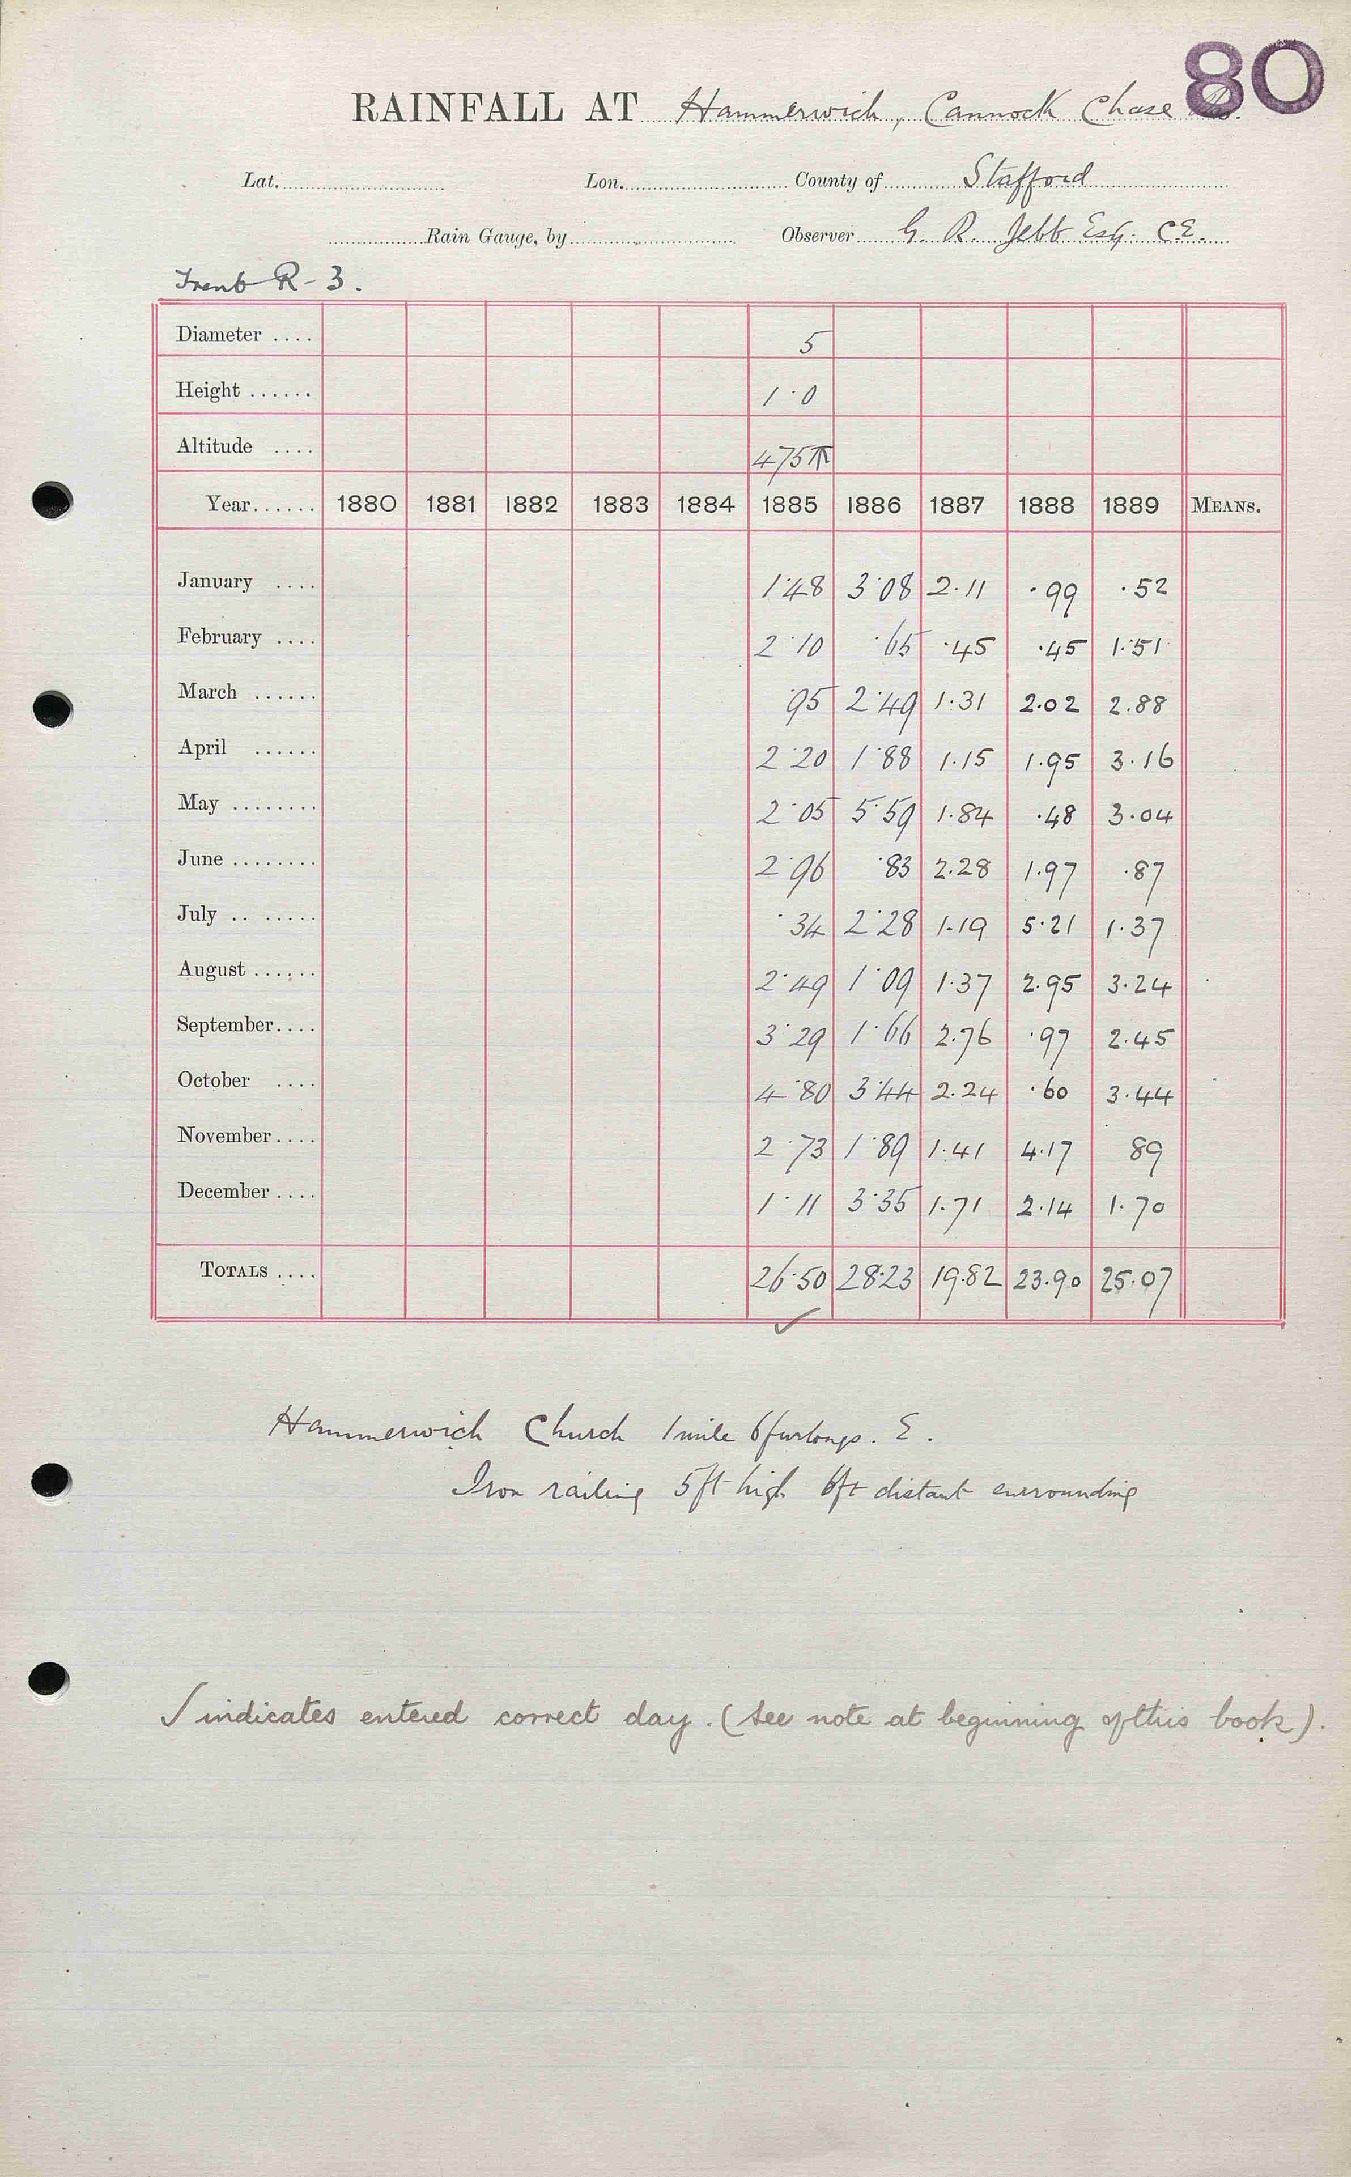 80
RAINFALL AT Hammerwich, Cannock Chase
Lat. Lon. County of Stafford
Rain Gauge, by Observer G. R. Jebb Esq. C.E.
Trent R - 3.
Diameter .... 5
Height ...... 1·0
Altitude .... 475
Year...... 1880 1881 1882 1883 1884 1885 1886 1887 1888 1889 MEANS.
January .... 1·48 3·08 2·11 ·99 ·52
February .... 2·10 ·65 ·45 ·45 1·51
March ...... ·95 2·49 1·31 2·02 2·88
April ...... 2·20 1·88 1·15 1·95 3·16
May ........ 2·05 5·59 1·84 ·48 3·04
June ........ 2·96 ·83 2·28 1·97 ·87
July .. ...... ·34 2·28 1·19 5·21 1·37
August ...... 2·49 1·09 1·37 2·95 3·24
September.... 3·29 1·66 2·76 ·97 2·45
October .... 4·80 3·44 2·24 ·60 3·44
November .... 2·73 1·89 1·41 4·17 89
December .... 1·11 3·35 1·71 2·14 1·70
TOTALS .... 26·50 28·23 19·82 23·90 25·07
✓
Hammerwich Church 1 mile 6 furlongs. E.
Iron railing 5ft high 6ft distant surrounding
✓ indicates entered correct day. (See note at beginning of this book).